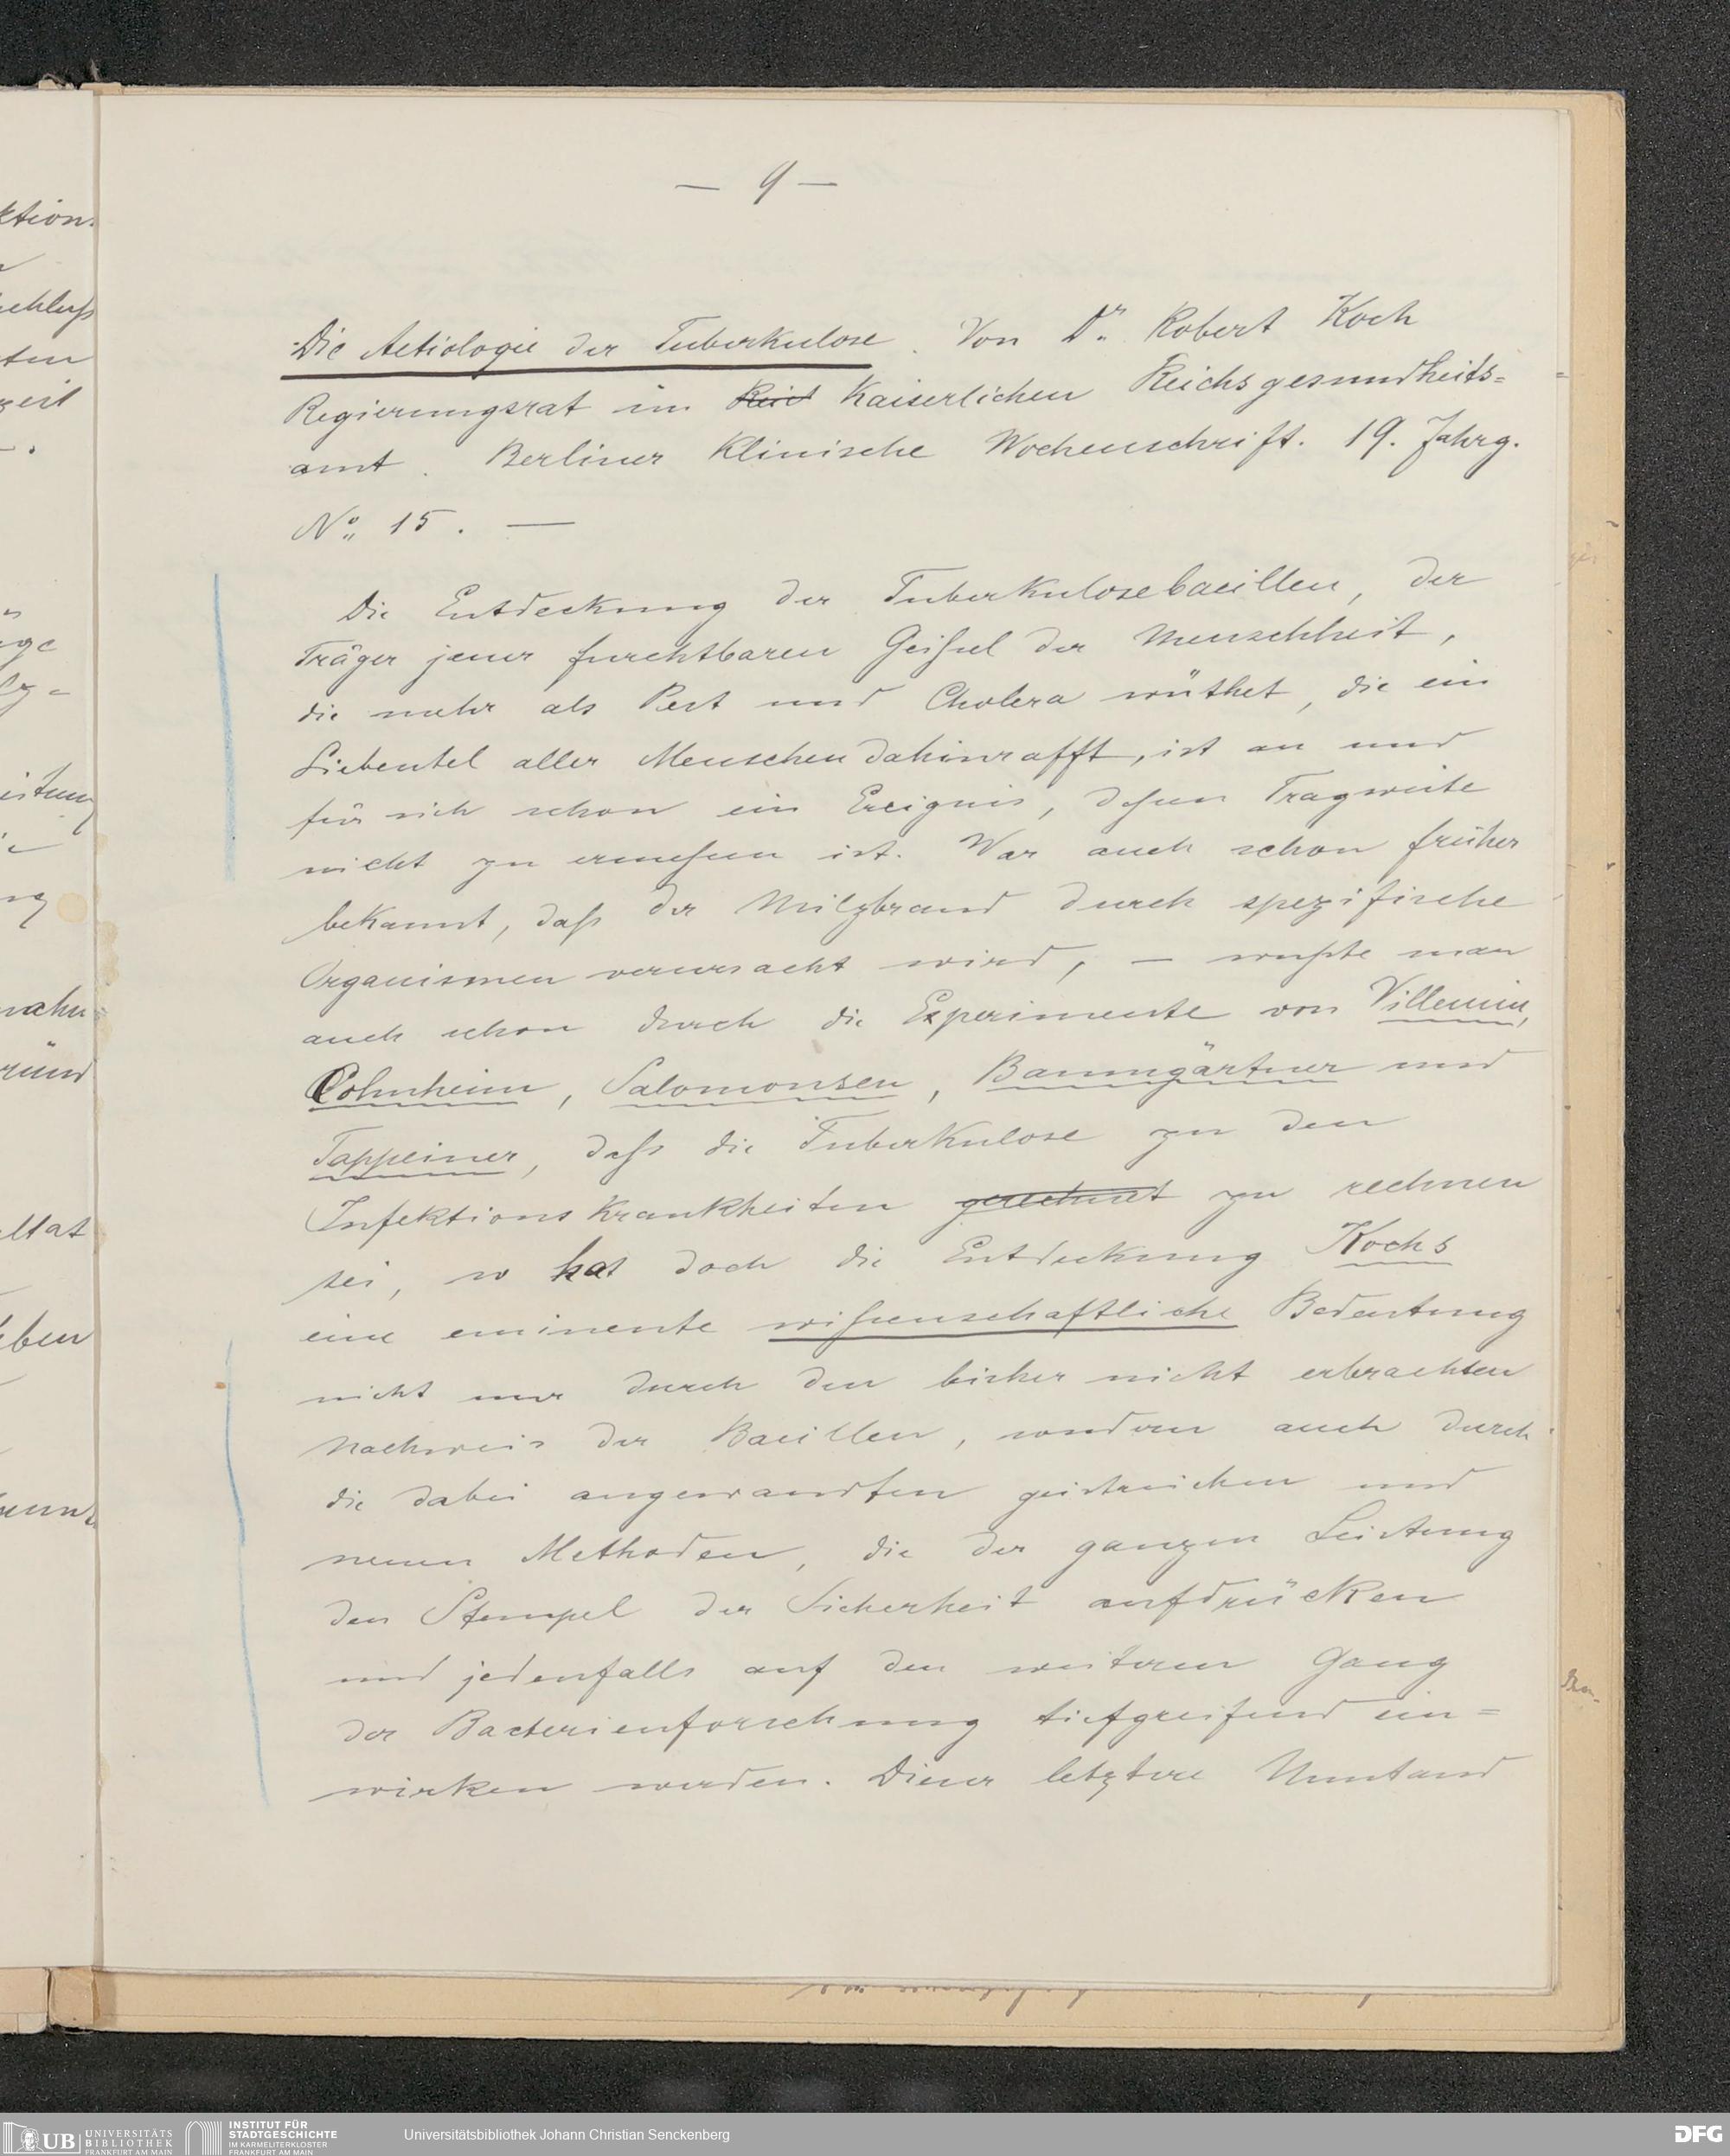 — 9 —
Die Aetiologie der Tuberkulose. Von Dr. Robert Koch
Regierungsrat im Reich Kaiserlichen Reichsgesundheits=
amt. Berliner Klinische Wochenschrift. 19. Jahrg.
No. 15. —
Die Entdeckung der Tuberkulosebacillen, der
Träger jener furchtbaren Geißel der Menschheit,
die mehr als Pest und Cholera wüthet, die ein
Siebentel aller Menschen dahinrafft, ist an und
für sich schon ein Ereignis, deßen Tragweite
nicht zu ermeßen ist. War auch schon früher
bekannt, daß der Milzbrand durch spezifische
Organismen verursacht wird, — wußte man
auch schon durch die Experimente von Villemin,
Cohnheim, Salomonsen, Baumgärtner und
Tappeiner, daß die Tuberkulose zu den
Infektionskrankheiten gerechnet zu rechnen
sei, so hat doch die Entdeckung Kochs
eine eminente wißenschaftliche Bedeutung
nicht nur durch den bisher nicht erbrachten
Nachweis der Bacillen, sondern auch durch
die dabei angewandten geistreichen und
neuen Methoden, die der ganzen Leistung
den Stempel der Sicherheit aufdrücken
und jedenfalls auf den weiteren Gang
der Bacterienforschung tiefgreifend ein=
wirken werden. Dieser letztere Umstand
ktion.
schluß
ten
zeit
eistung
ng
ltat
UB UNIVERSITÄTS
BIBLIOTHEK
FRANKFURT AM MAIN
INSTITUT FÜR
STADTGESCHICHTE
IM KARMELITERKLOSTER
FRANKFURT AM MAIN
Universitätsbibliothek Johann Christian Senckenberg
DFG